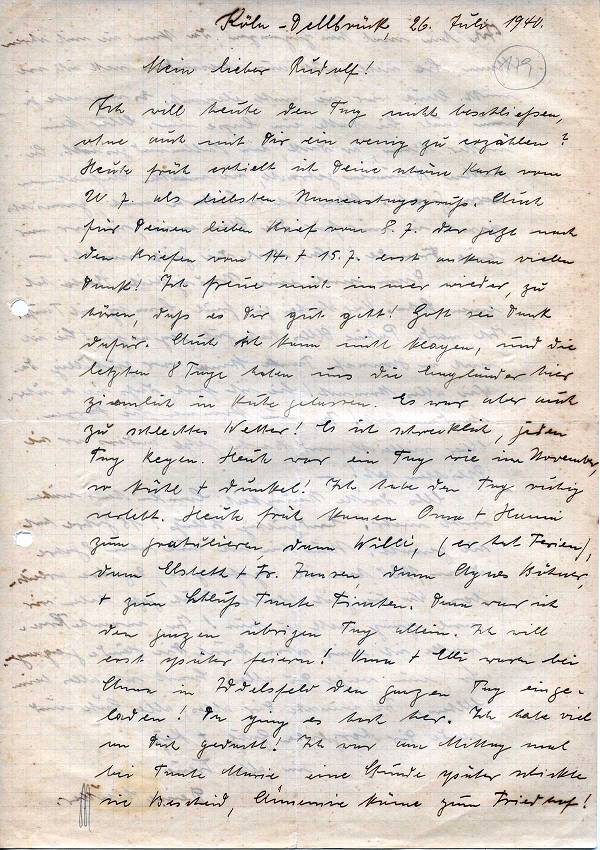 Köln-Dellbrück, 26. Juli 1940.
119.
Mein lieber Rudolf!
Ich will heute den Tag nicht beschließen,
ohne auch mit Dir ein wenig zu erzählen?
Heute früh erhielt ich Deine schöne Karte vom
20. 7. als liebsten Namenstagsgruß. Auch
für Deinen lieben Brief vom 8. 7. der jetzt nach
den Briefen vom 14. + 15. 7. erst ankam vielen
Dank! Ich freue mich immer wieder, zu
hören, daß es Dir gut geht! Gott sei Dank
dafür. Auch ich kann nicht klagen, und die
letzten 8 Tage haben uns die Engländer hier
ziemlich in Ruhe gelassen. Es war aber auch
zu schlechtes Wetter! Es ist schrecklich, jeden
Tag Regen. Heute war ein Tag wie im November,
so kühl + dunkel! Ich habe den Tag ruhig
verlebt. Heute früh kamen Oma + Hanni
zum gratulieren dann Willi, (er hat Ferien),
dann Elsbeth + Fr. Jansen dann Agnes
+ zum Schluß Tante Dann war ich
den ganzen übrigen Tag allein. Ich will
erst später feiern! Oma + Elli waren bei
Anna in Iddelsfeld den ganzen Tag einge-
laden! Da ging es hoch her. Ich habe viel
an Dich gedacht! Ich war am Mittag mal
bei Tante Marie eine Stunde später schickte
sie Bescheid, käme zum Friedhof!